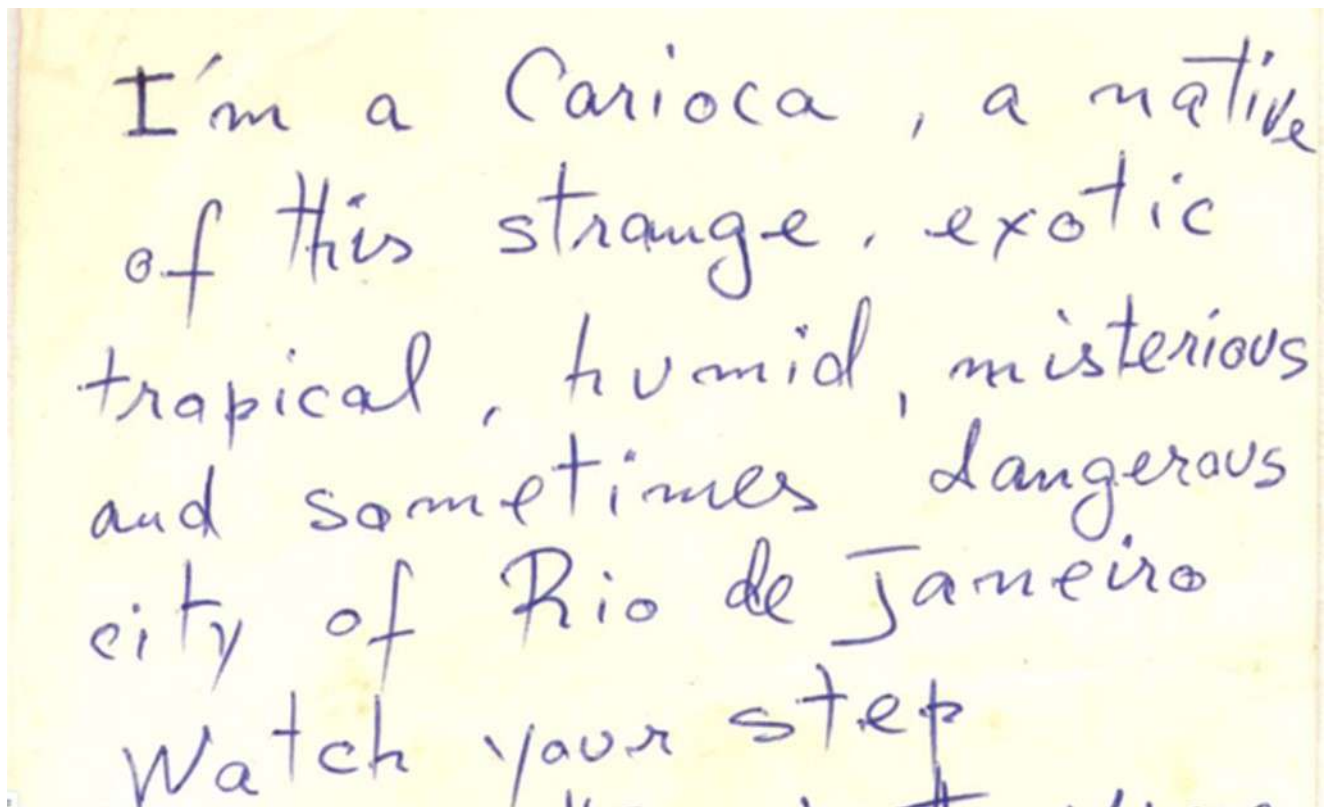 I'm a Carioca, a native
of this strange, exotic
tropical, humid, misterious
and sometimes dangerous
city of Rio de Janeiro
Watch your step